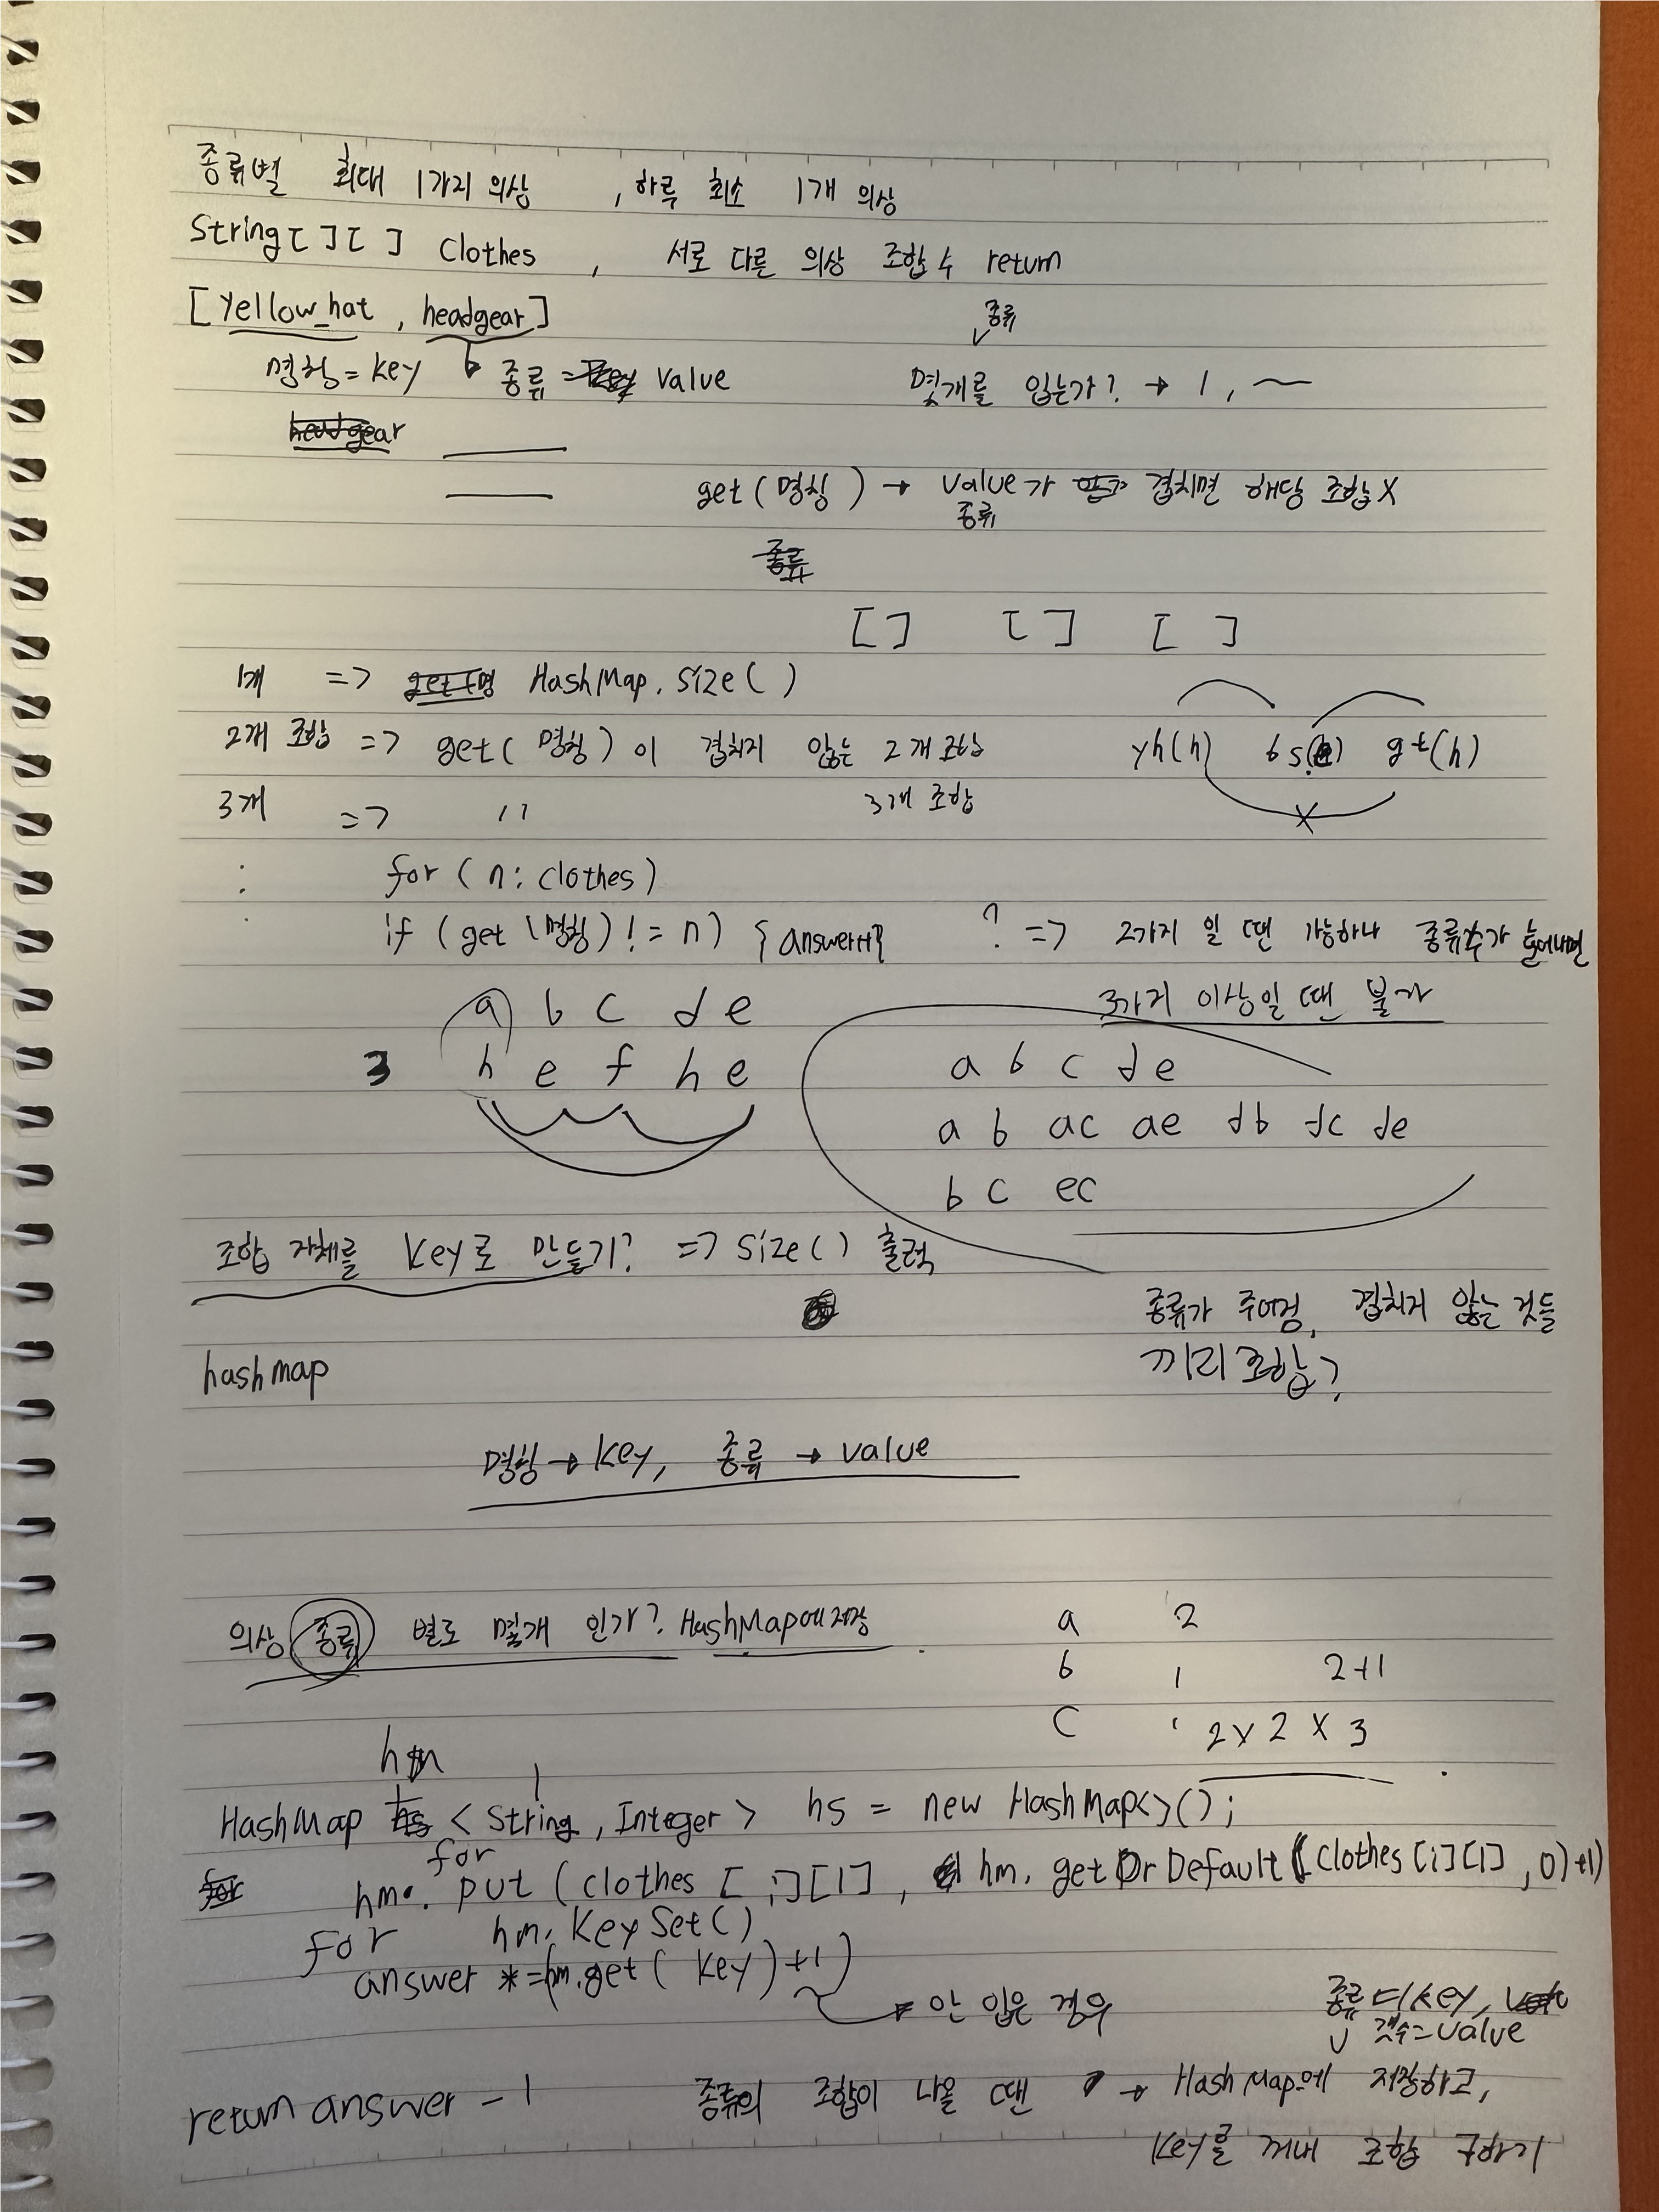 종류별 최대 1가지 의상 , 하루 최소 1개 의상
String[][] Clothes , 서로 다른 의상 조합 수 return
[Yellow_hat, headgear]
종류
명칭 = key 종류 = value 몇개를 입는가? → 1, ~
headgear
get(명칭) → value가 겹치면 해당 조합X
종류
종류
[] [] []
1개 => HashMap.size()
2개 조합 => get(명칭)이 겹치지 않는 2개 조합 yh(h) bs(e) gt(h)
3개 => '' 3개 조합 X
: for (n: clothes)
if (get(명칭) != n) {answer++} ? => 2가지 일 땐 가능하나 종류수가 늘어나면
3가지 이상일 땐 불가
a b c d e
3 h e f h e
a b c d e
ab ac ae db dc de
bc ec
조합 자체를 key로 만들기? => size() 출력
종류가 주어짐, 겹치지 않는 것들
끼리 조합?
hashmap
명칭 → key, 종류 → value
의상 종류 별로 몇개 인가? HashMap에 저장
a 2
b 1 2+1
c 1 2 x 2 x 3
hm
HashMap <String, Integer> hs = new HashMap<>();
for
for hm. put (clothes [i][1], hm. getOrDefault(clothes[i][1], 0)+1)
for hm. KeySet()
answer *= (hm.get( key)+1)
안 입은 경우
종류 = key,
갯수 = value
return answer - 1 종류의 조합이 나올 땐 → HashMap에 저장하고,
key를 꺼내 조합 구하기